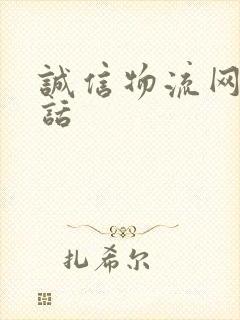 誠信物流网
話
扎希尔